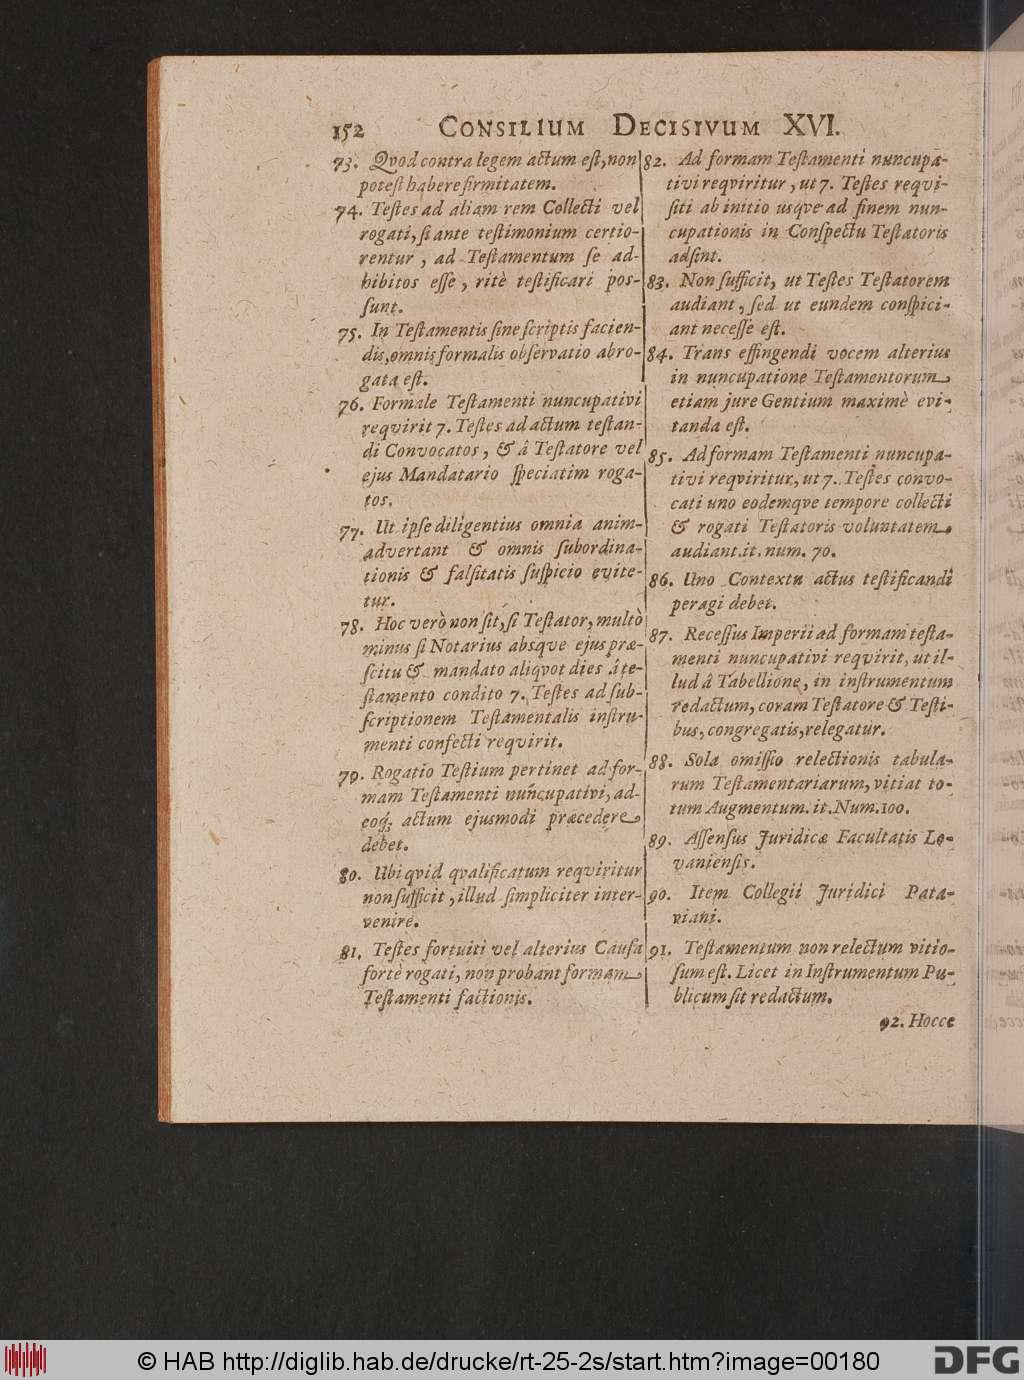 152 CONSILIUM DECISIVUM XVI.
73. Qvod contra legem actum est, non
potest habere firmitatem.
74. Testes ad aliam rem Collecti vel
rogati, si ante testimonium certio-
rentur, ad Testamentum se ad-
hibitos esse, ritè testificari pos-
sunt.
75. In Testamentis sine scriptis facien-
dis, omnis formalis observatio abro-
gata est.
76. Formale Testamenti nuncupativi
reqvirit 7. Testes ad actum testan-
di Convocatos, & â Testatore vel
ejus Mandatario speciatim roga-
tos.
77. Ut ipse diligentius omnia anim-
advertant & omnis subordina-
tionis & falsitatis suspicio evite-
tur.
78. Hoc verò non sit, si Testator, multò
minus si Notarius absqve ejus præ-
scitu & mandato aliqvot dies â te-
stamento condito 7. Testes ad sub-
scriptionem Testamentalis instru-
menti confecti reqvirit.
79. Rogatio Testium pertinet ad for-
mam Testamenti nuncupativi, ad-
eoq; actum ejusmodi præcedere
debet.
80. Ubi qvid qvalificatum reqviritur
non sufficit, illud simpliciter inter-
venire.
81. Testes fortuiti vel alterius Causa
fortè rogati, non probant formam
Testamenti factionis.
82. Ad formam Testamenti nuncupa-
tivi reqviritur, ut 7. Testes reqvi-
siti ab initio usqve ad finem nun-
cupationis in Conspectu Testatoris
adsint.
83. Non sufficit, ut Testes Testatorem
audiant, sed ut eundem conspici-
ant necesse est.
84. Trans effingendi vocem alterius
in nuncupatione Testamentorum
etiam jure Gentium maximè evi-
tanda est.
85. Ad formam Testamenti nuncupa-
tivi reqviritur, ut 7. Testes convo-
cati uno eodemqve tempore collecti
& rogati Testatoris voluntatem
audiant. it. num. 70.
86. Uno Contextu actus testificandi
peragi debet.
87. Recessus Imperii ad formam testa-
menti nuncupativi reqvirit, ut il-
lud â Tabellione, in instrumentum
redactum, coram Testatore & Testi-
bus, congregatis, relegatur.
88. Sola omissio relectionis tabula-
rum Testamentariarum, vitiat to-
tum Augmentum. it. Num. 100.
89. Assensus Juridicæ Facultatis Lo-
vaniensis.
90. Item Collegii Juridici Pata-
viani.
91. Testamentum non relectum vitio-
sum est. Licet in Instrumentum Pu-
blicum sit redactum.
92. Hocce
© HAB http://diglib.hab.de/drucke/rt-25-2s/start.htm?image=00180
DFG